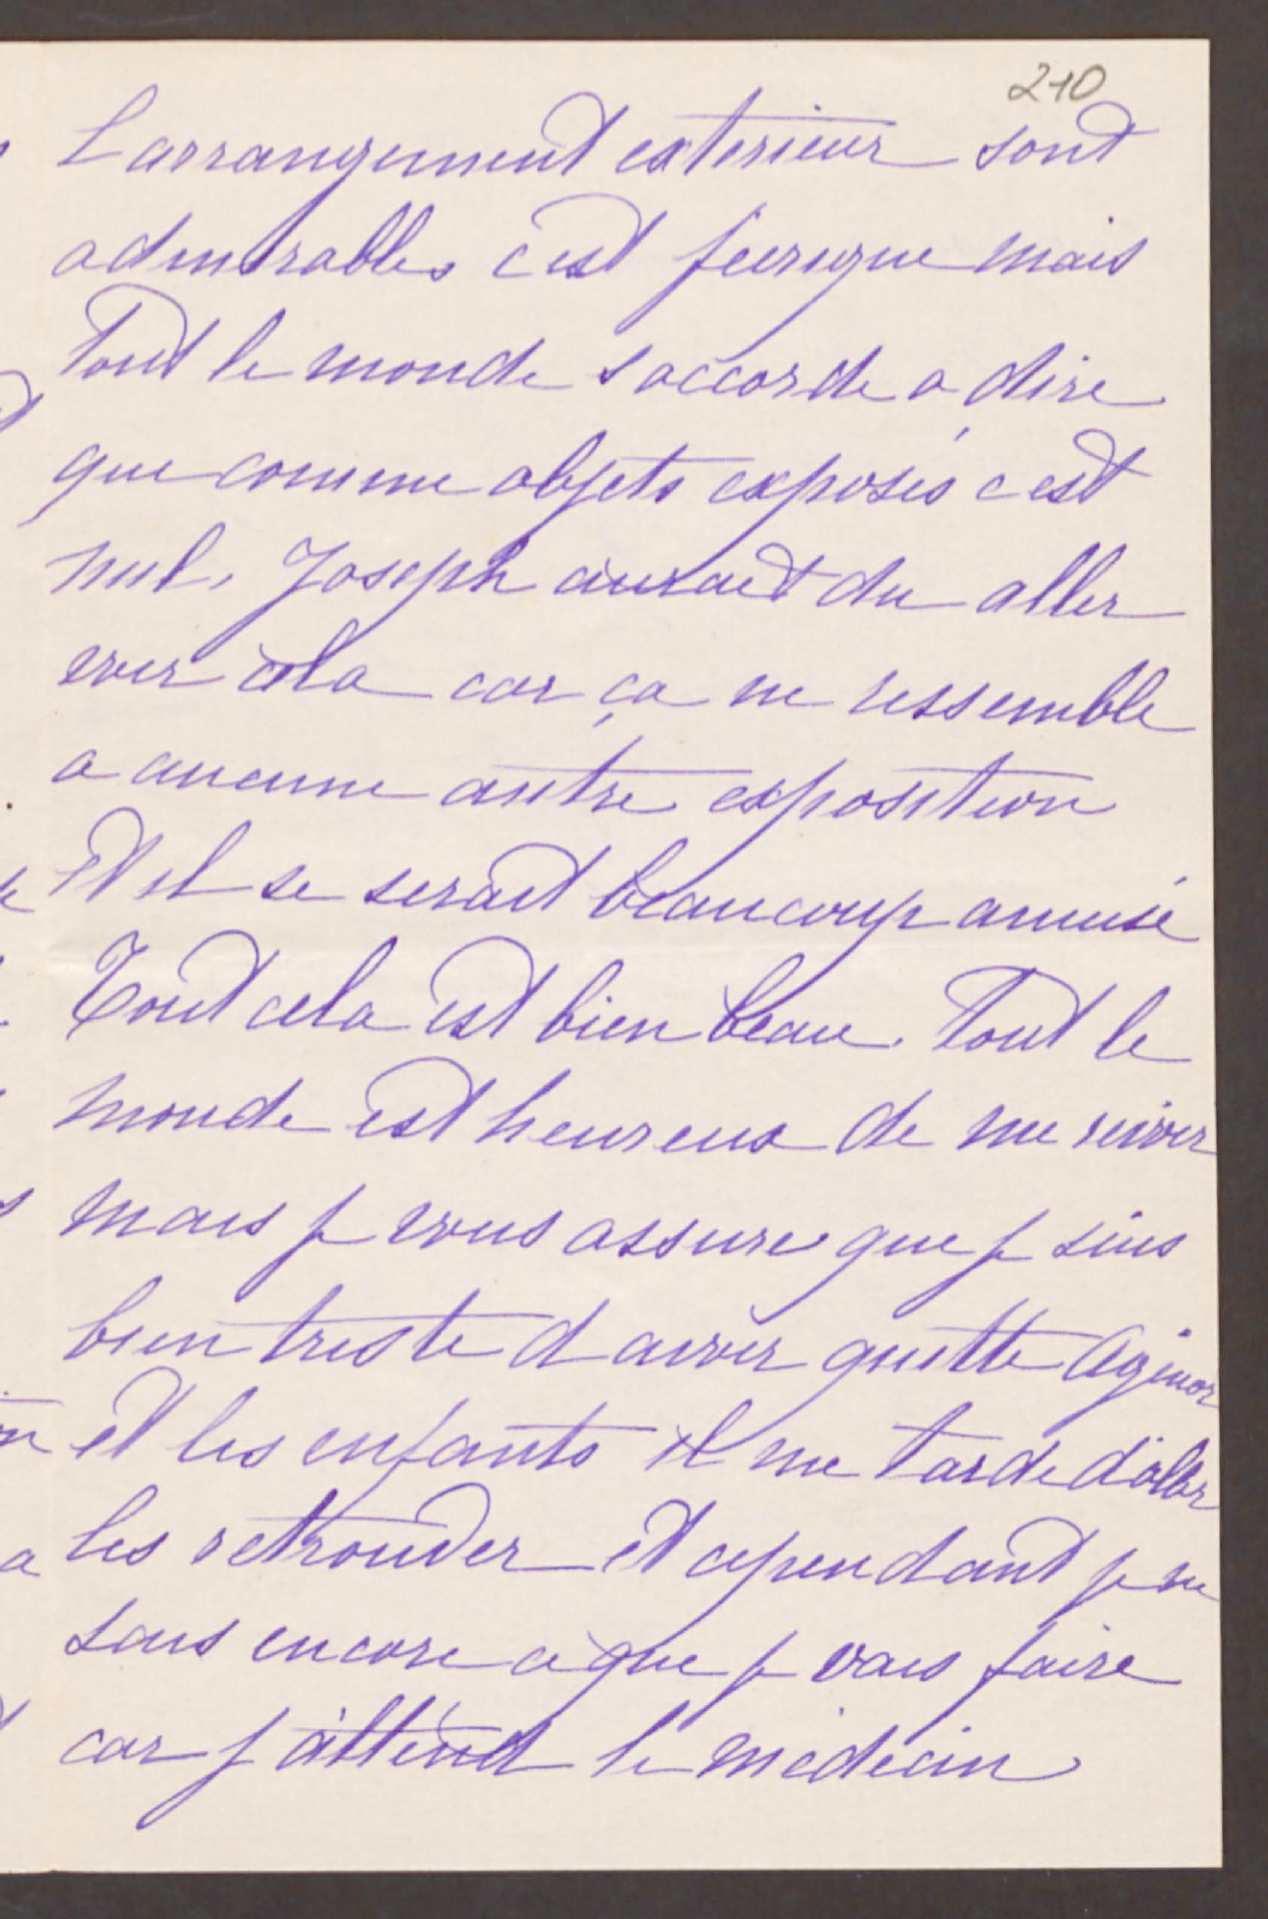 210
L arrangement exterieur sont
admirables c'est feerique mais
Tout le monde s accorde a dire
que comme objets exposés c est
nul. Joseph aurait du aller
voir cela car ça ne ressemble
a aucune autre exposition
Et il se serait beaucoup amusé
Tout cela est bien beau. Tout le
monde est heureux de me revoir
mais je vous assure que je suis
bien triste d avoir quitté Agenor
et les enfants il me tarde d'aller
les retrouver et cependant je ne
sais encore ce que je vais faire
car j attend le médecin